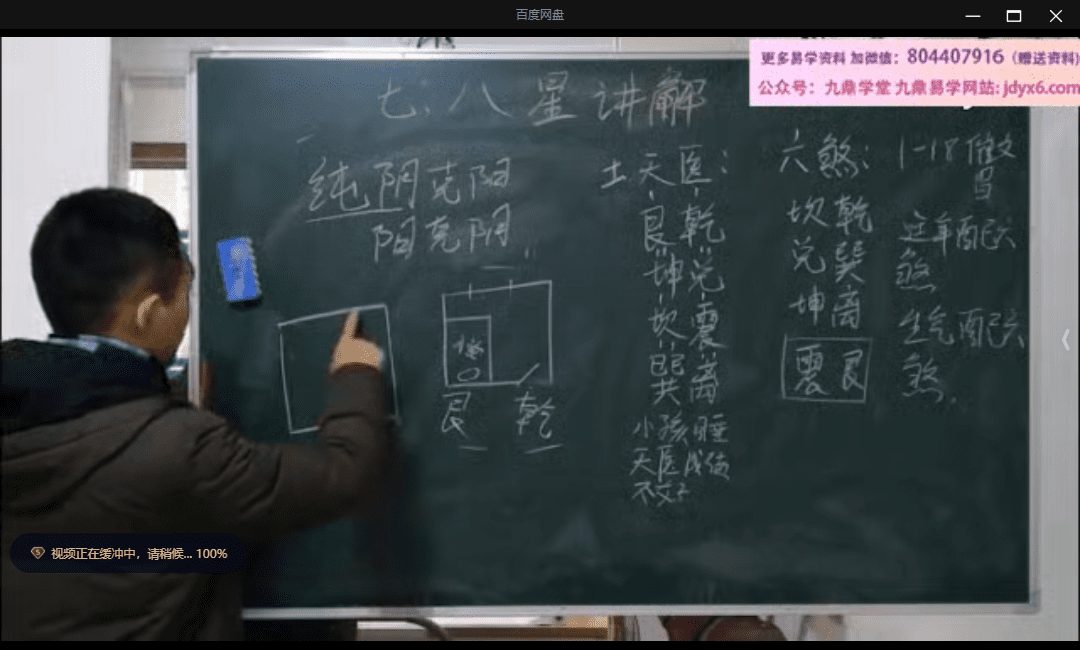 百度网盘
更多易学资料 加微信：804407916（赠送资料）
公众号：九鼎学堂 九鼎易学网站: jdyx6.com
七、八星讲解
纯阴克阳
阳克阴
艮 乾
土天医：
艮乾
坤兑
坎震
巽离
小孩睡
天医成绩
不好
六煞：
坎乾
兑巽
坤离
震艮
1-18
这年配六
煞
生气配六
煞.
视频正在缓冲中，请稍候... 100%